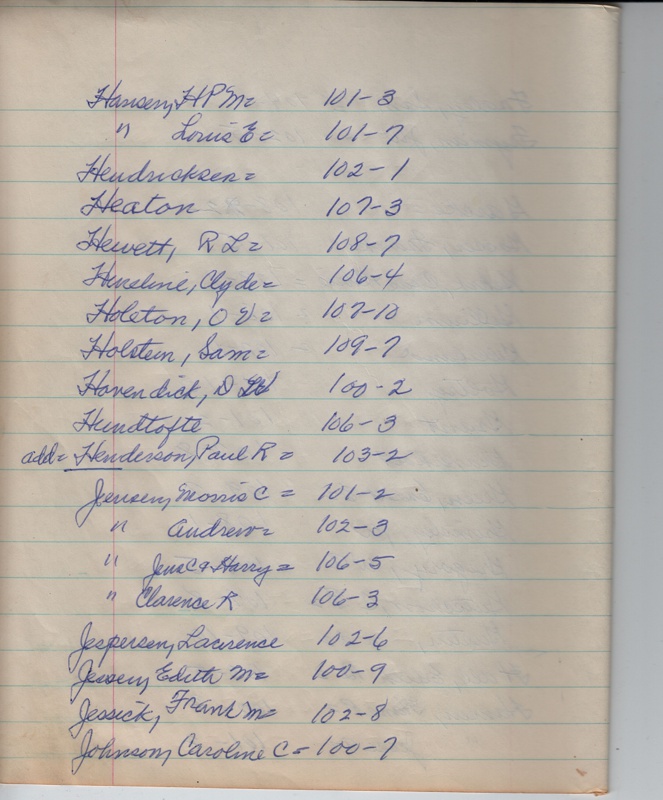 Hansen, H P M = 101-3
" Louis E = 101-7
Hendricksen = 102-1
Heaton 107-3
Hewett, R L = 108-7
Hineline, Clyde = 106-4
Holeton, O V = 107-10
Holstein, Sam = 109-7
Hovendick, D W 100-2
Hundtofte 106-3
add = Henderson, Paul R = 103-2
Jensen, Morris C = 101-2
" Andrew = 102-3
" Jens C & Harry = 106-5
" Clarence R 106-3
Jespersen, Lawrence 102-6
Jessen, Edith M = 100-9
Jessick, Frank M = 102-8
Johnson, Caroline C = 100-7